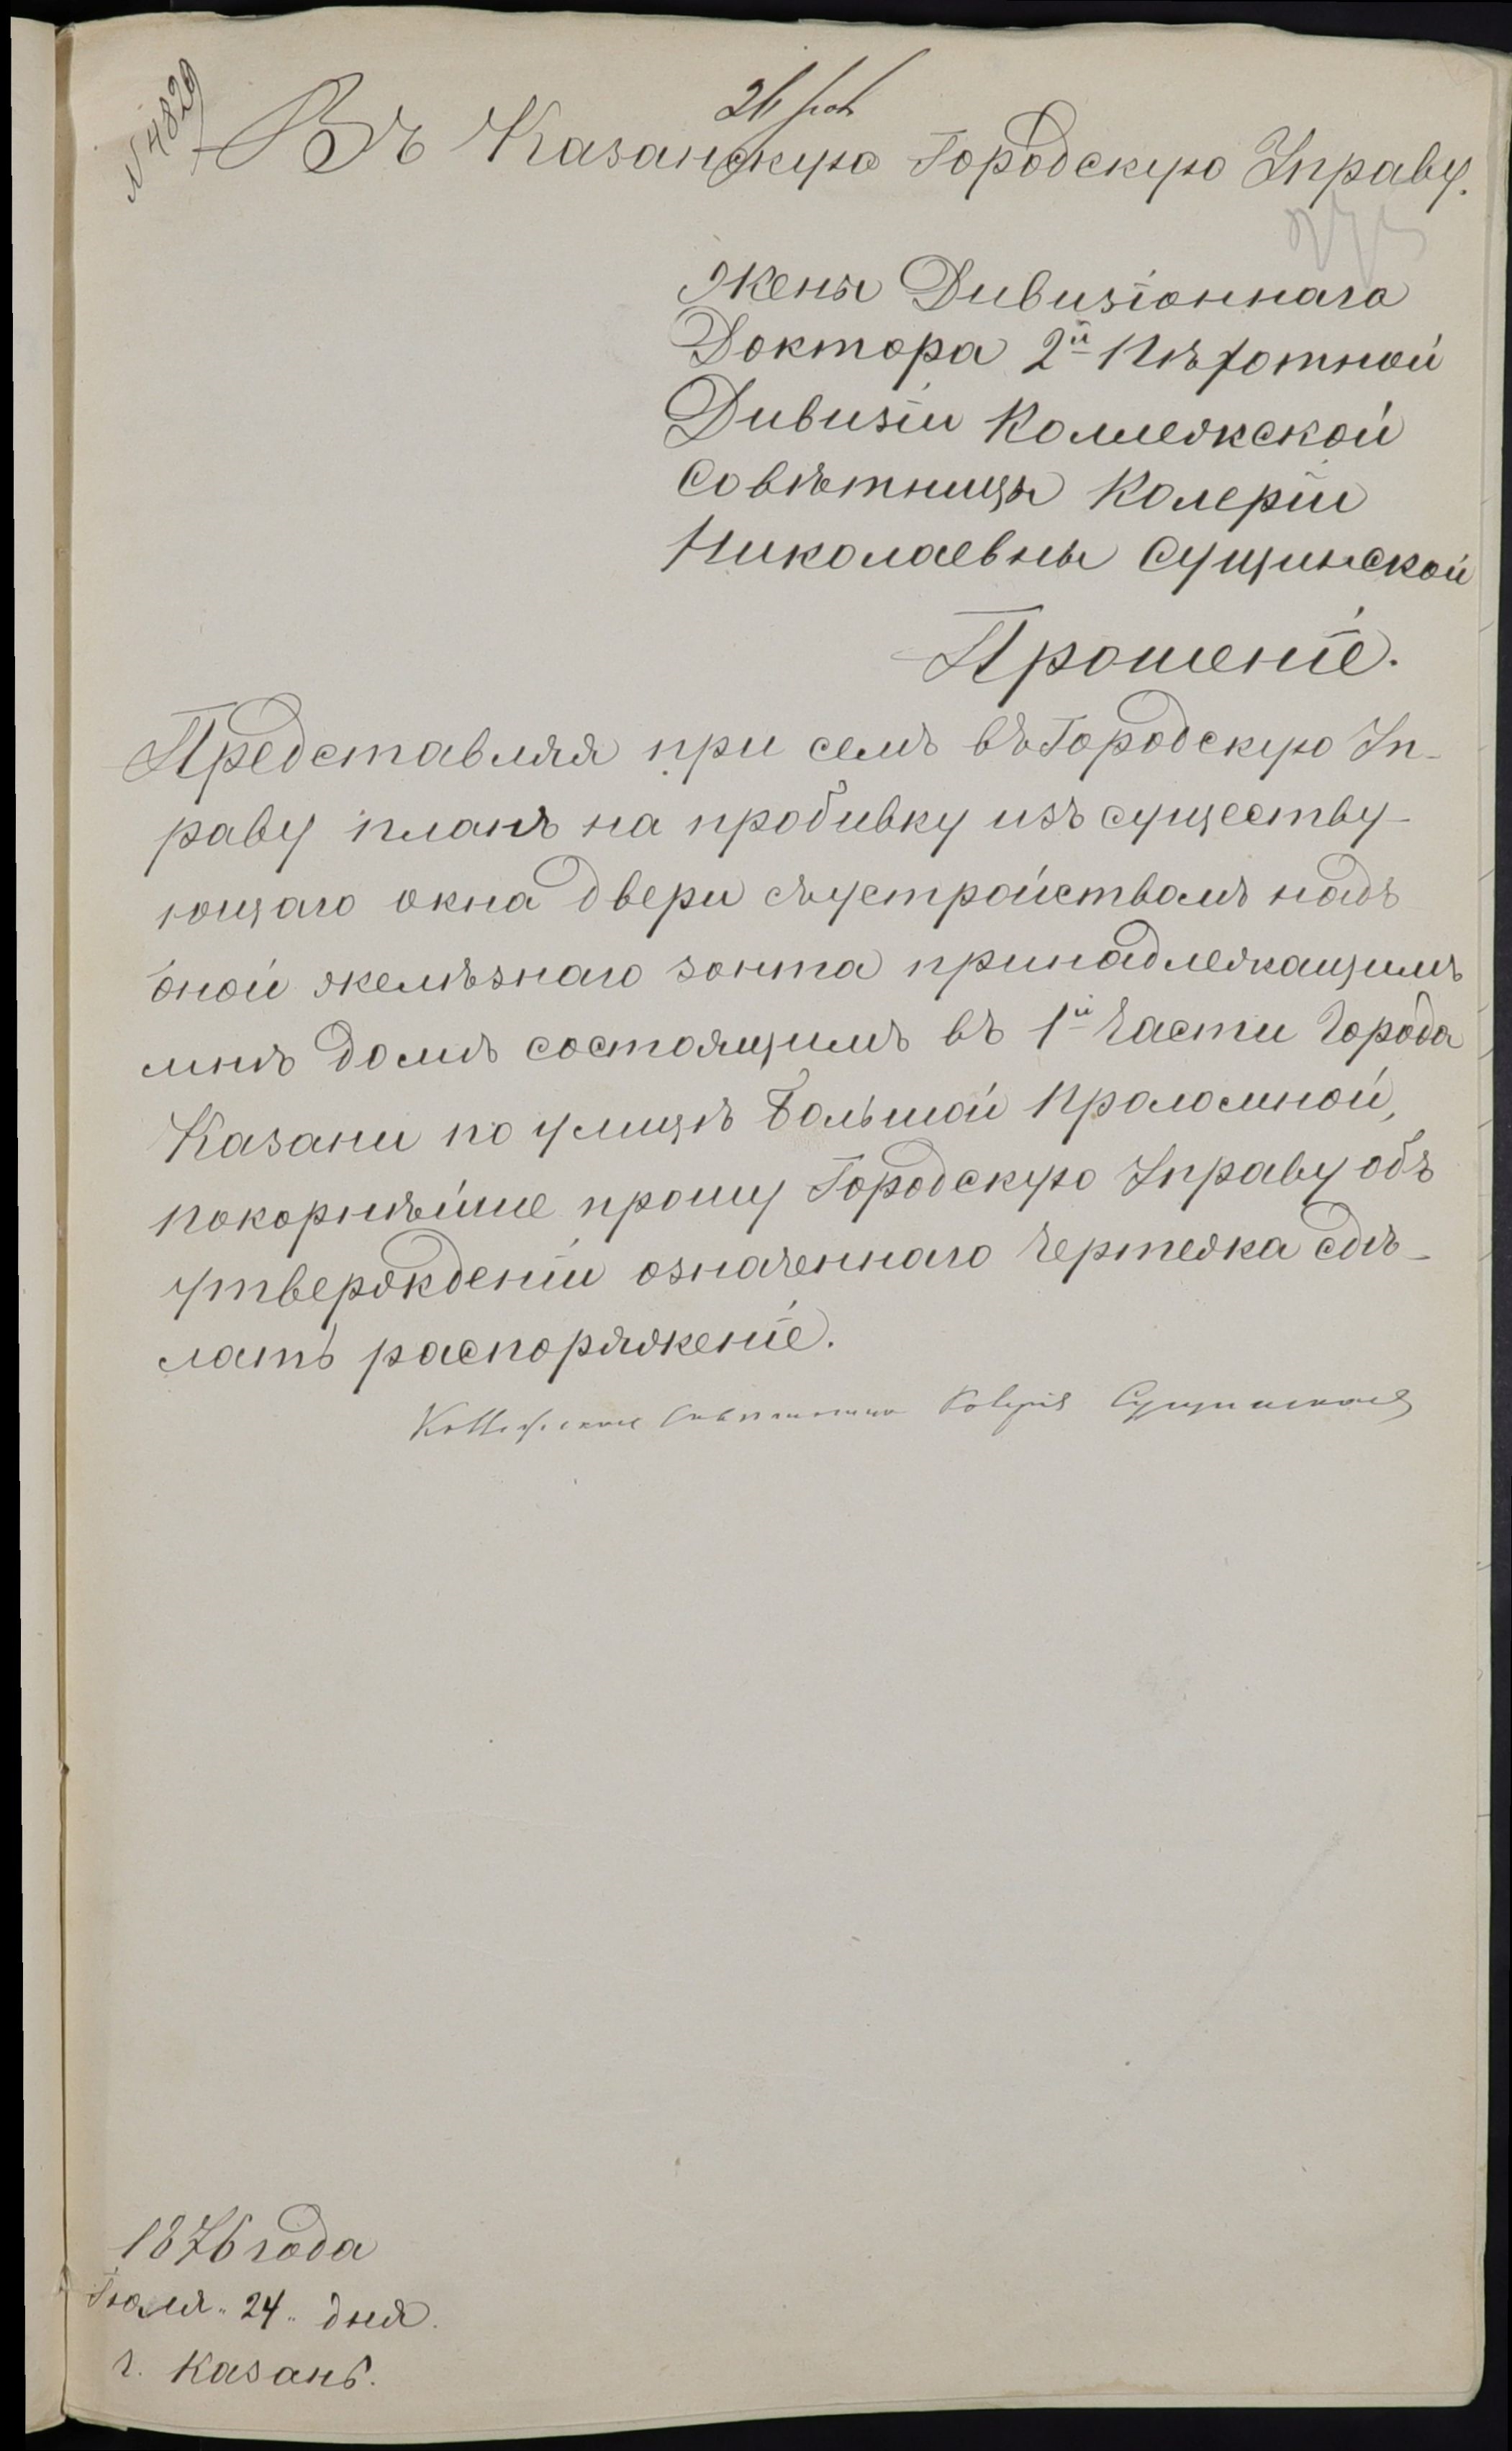 № 4829
26 іюл
Въ Казанскую Городскую Управу.
Жены Дивизіоннаго
Доктора 2й Пѣхотной
Дивизіи Коллежской
Совѣтницы Колеріи
Николаевны Сущинской
Прошеніе.
Представляя при семъ въ Городскую Уп-
раву планъ на пробивку изъ существу-
ющаго окна двери съ устройствомъ надъ
оной желѣзнаго зонта принадлежащимъ
мнѣ домѣ состоящимъ въ 1й части города
Казани по улицѣ Большой Проломной,
покорнѣйше прошу Городскую Управу объ
утвержденіи означеннаго чертежа сдѣ-
лать распоряженіе.
Коллежская Совѣтница Колерія Сущинская
1876 года
Іюля „24„ дня.
г. Казань.